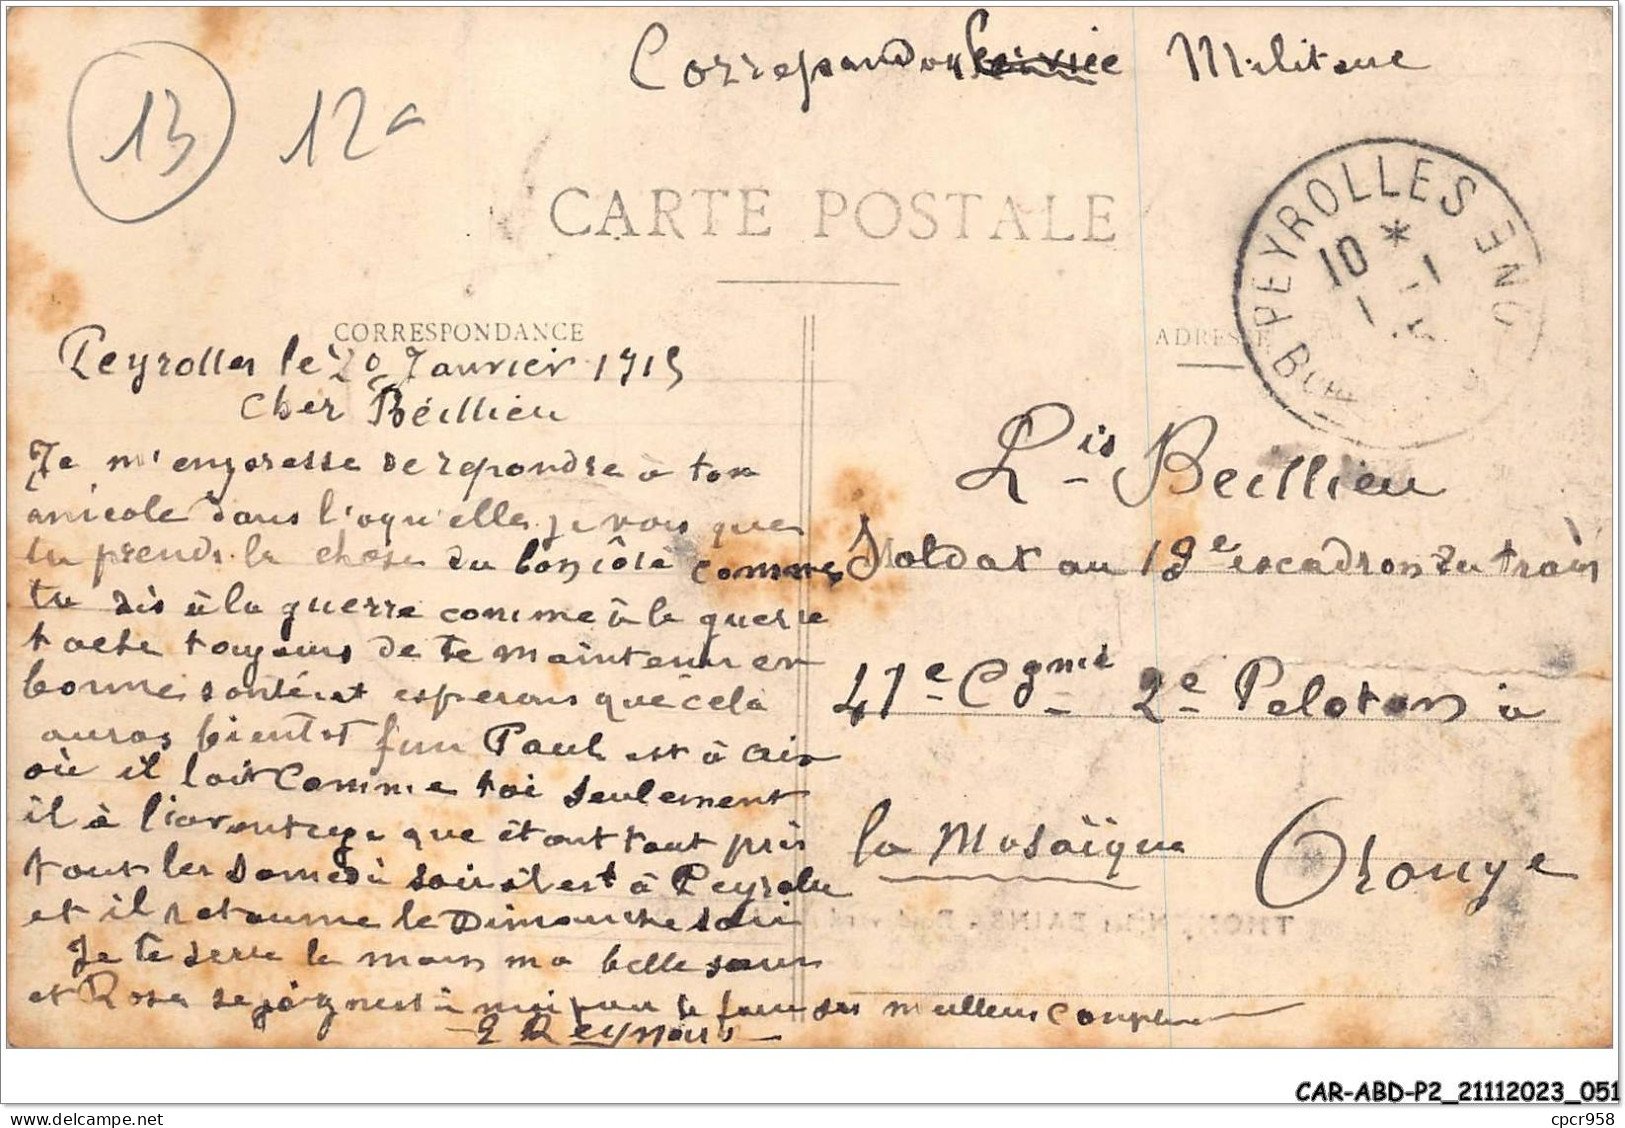 Correspondance Service Militaire
13 12a
CARTE POSTALE
PEYROLLES EN
B
10 *
CORRESPONDANCE
ADRESSE
Peyrolles le 20 Janvier 1915
Cher Béillieu
Je m'empresse de repondre à ton
amicale dans l'aqu'elle je vois que
tu prends la chose du bon côté comme
tu dis à la guerre comme à la guerre
tache toujours de te maintenir en
bonne santé et esperons que cela
auras bientot fini Paul est à Aix
où il loit comme toi seulement
il à l'avantage que étant tout près
tout les samedi soir il est à Peyrolles
et il retourne le Dimanche soir
Je te serre la main ma belle sœur
et Rosa se joignent à moi pour te faire ses meilleurs
Reynaud
Lis Beillieu
Soldat au 19e escadron du train
41e Cgnie 2e Peloton à
la Mosaïque Orange
THONON les BAINS
CAR-ABD-P2_21112023_051
cpcr958